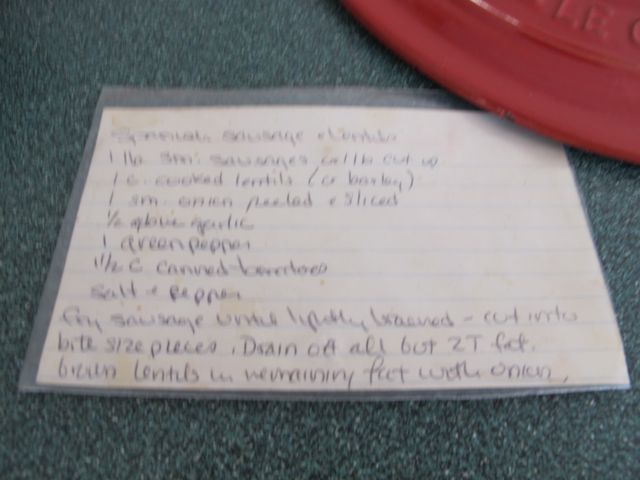 LE C
Spanish sausage & lentils
1 lb sm. sausages cut up
1 c. cooked lentils (or barley)
1 sm. onion peeled & sliced
1/2 clove garlic
1 green pepper
1 1/2 c canned tomatoes
salt & pepper
Fry sausage until lightly browned - cut into
bite size pieces. Drain off all but 2T fat.
brown lentils in remaining fat with onion,